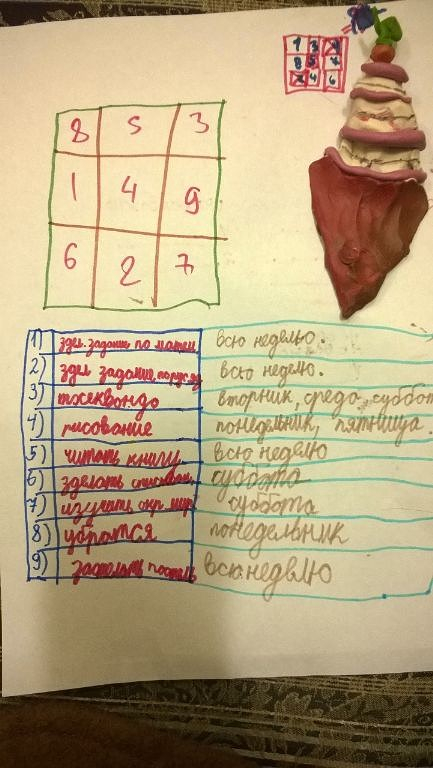 1 3
8 5
4 6
8 5 3
1 4 9
6 2 7
1) здел. задание по матем. всю неделю.
2) здел задание по русяз всю неделю.
3) тосеквондо вторник, среда, суббот
4) рисование понедельник, пятница.
5) читать книгу всю неделю
6) зделать суббота
7) изучать окр. мир суббота
8) убратся понедельник
9) застелить постель всю неделю